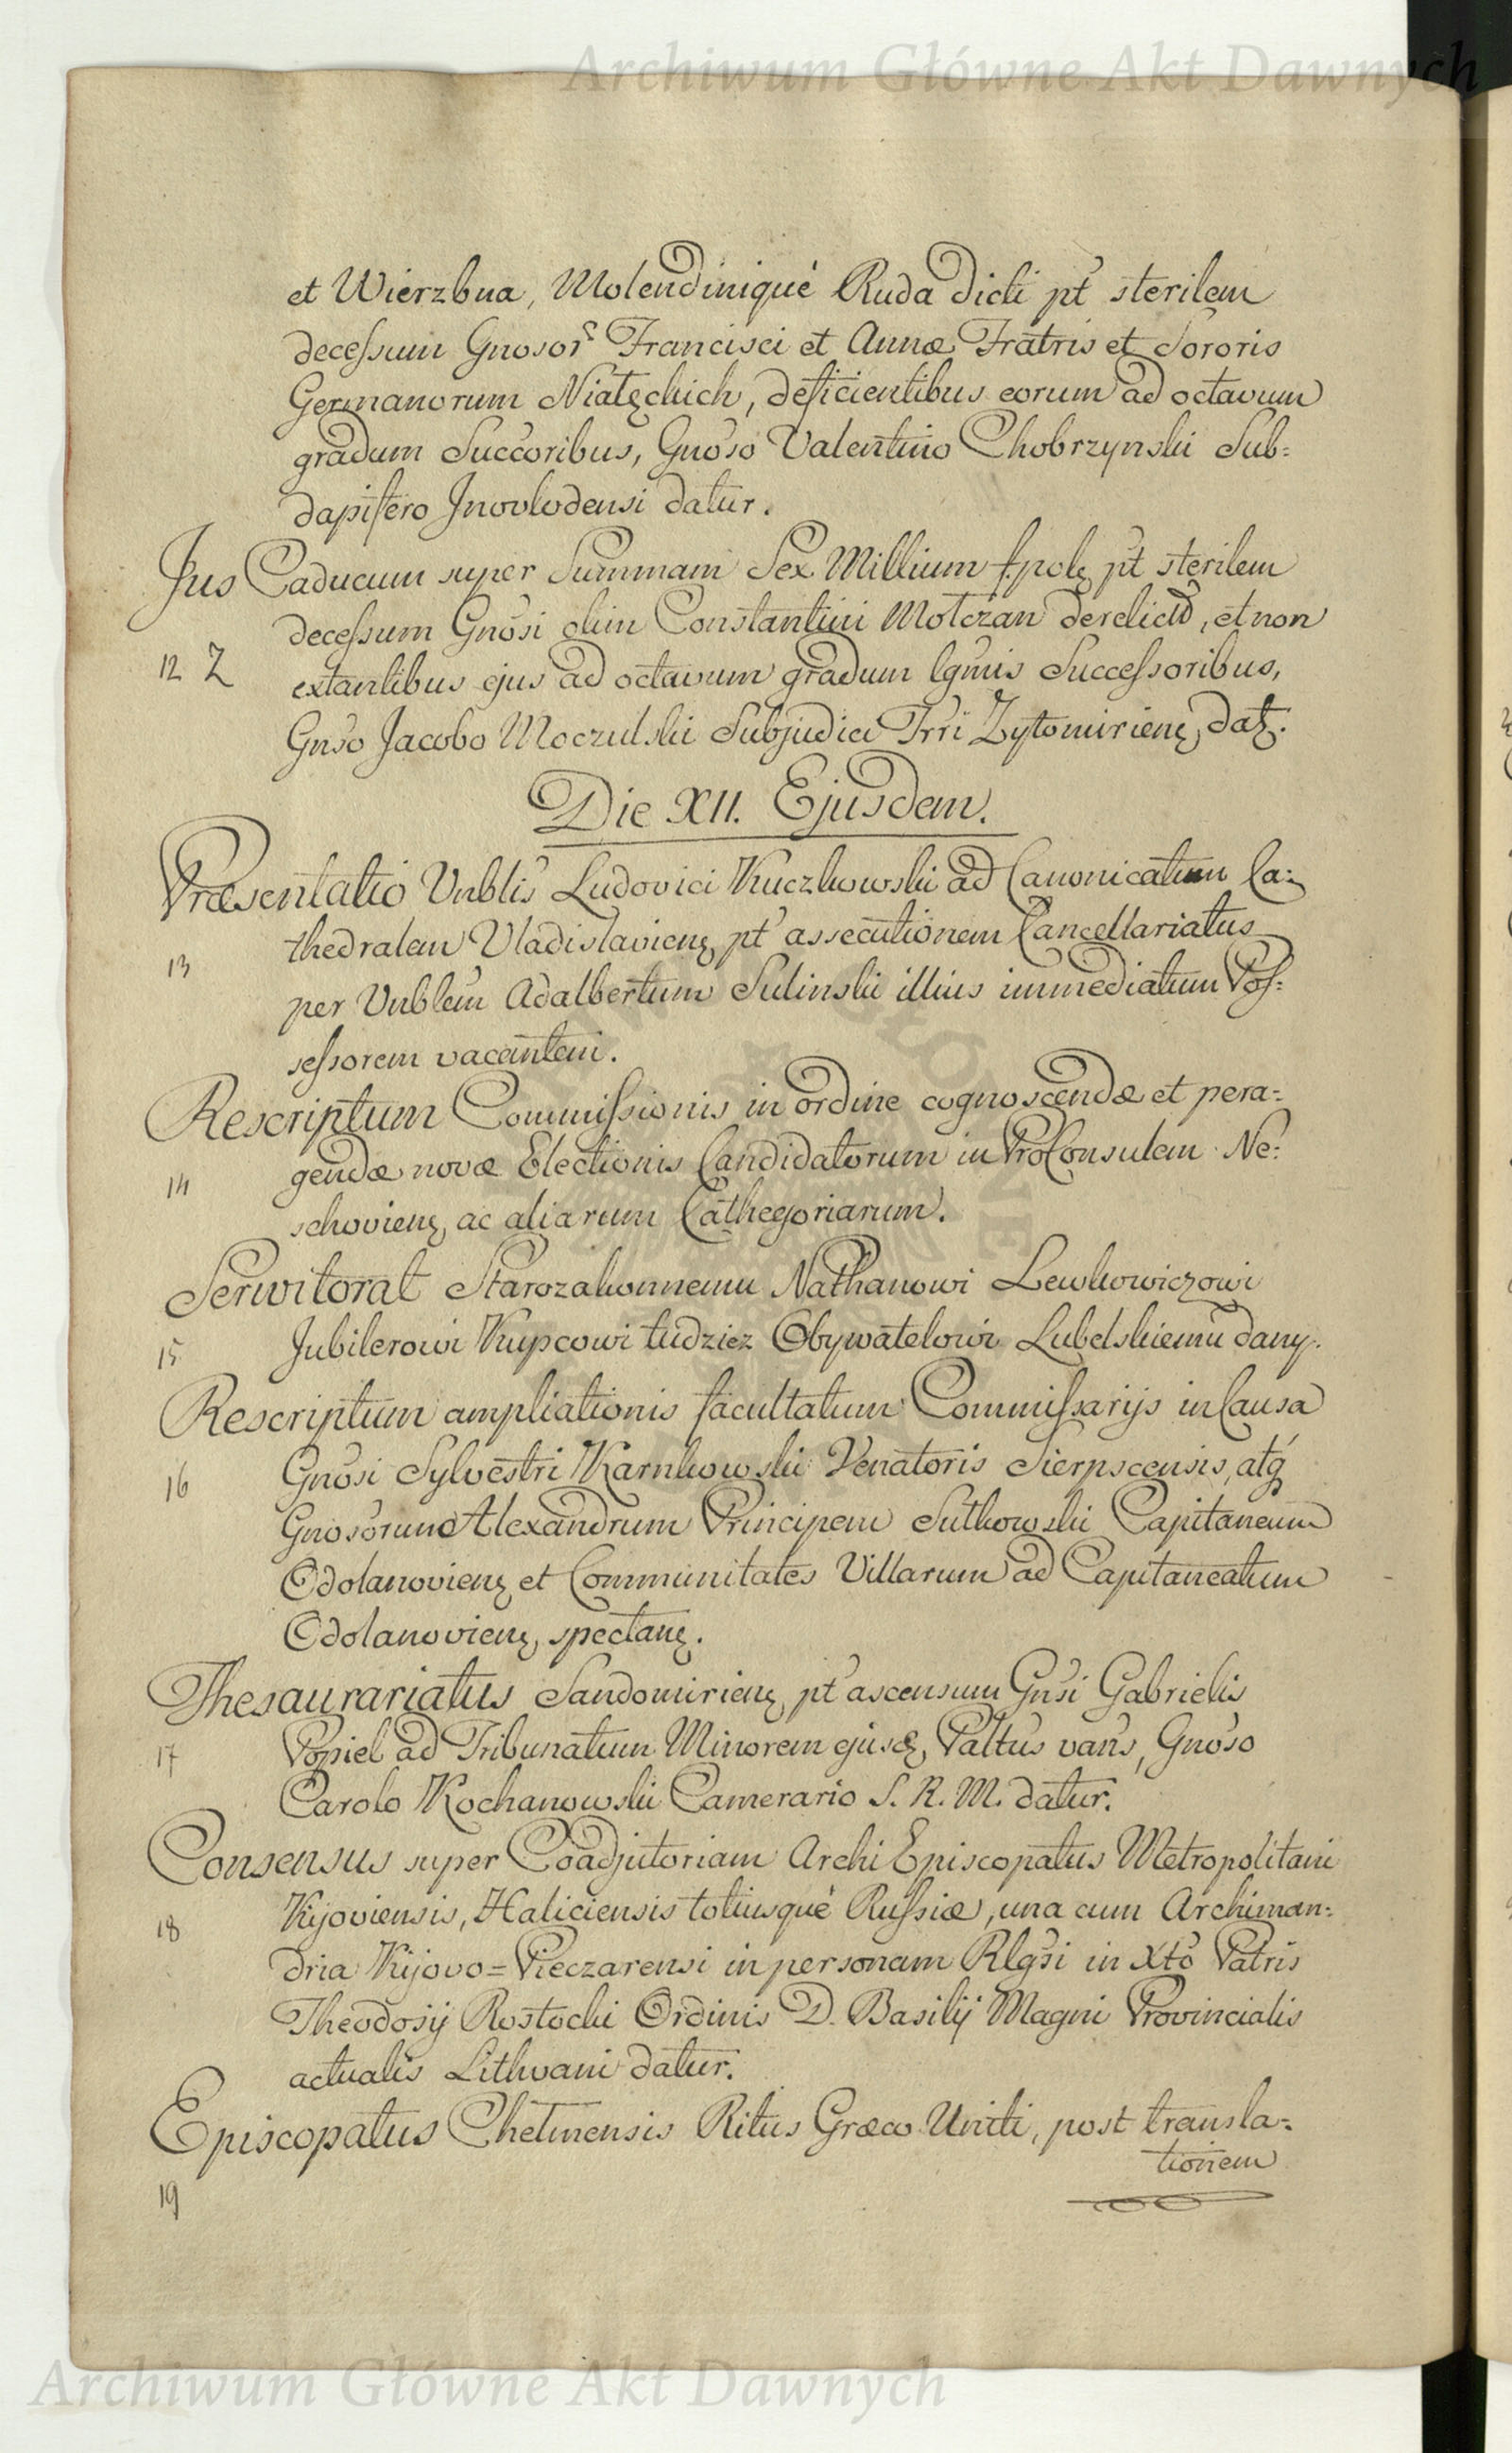 Archiwum Główne Akt Dawnych
et Wierzbna, Molendiniquè Ruda dicti pt sterilem
decessum Gnosor̃ Francisci et Annæ Fratris et Sororis
Germanorum Niatęckich, deficientibus eorum ad octavum
gradum Succoribus, Gnoso Valentino Chobrzynski Sub=
dapifero Inovlodensi datur.
Jus Caducum super Summam Sex Millium f. polę pt sterilem
decessum Gnosi olim Constantini Motczan derelictã, et non
12 Z extantibus ejus ad octavum gradum lgmis Successoribus,
Gnso Jacobo Moczulski Subjudici Trri Zytomirienę datę.
Die XII. Ejusdem.
Præsentatio Vnblis Ludovici Kuczkowski ad Canonicatum Ca=
thedralem Vladislavienę pt assecutionem Cancellariatus
13 per Vnblem Adalbertum Sulinski illius immediatum Pos=
sessorem vacantem.
Rescriptum Commissionis in ordine cognoscendæ et pera=
gendæ novæ Electionis Candidatorum in ProConsulem Ne=
14 schovienę ac aliarum Cathegoriarum.
Serwitorat Starozakonnemu Nathanowi Lewkowiczowi
15 Jubilerowi Kupcowi tudziez Obywatelowi Lubelskiemu dany.
Rescriptum ampliationis facultatum Commissarijs in Causa
16 Gnosi Sylvestri Karnkowski Venatoris Sierpscensis, atq
Gnosorum Alexandrum Principem Sulkowski Capitaneum
Odolanovienę et Communitates Villarum ad Capitaneatum
Odolanovienę spectanę.
Thesaurariatus Sandomirienę pt ascensum Gnsi Gabrielis
17 Popiel ad Tribunatum Minorem ejusdę Paltus vans, Gnoso
Carolo Kochanowski Camerario S. R. M. datur.
Consensus super Coadjutoriam Archi Episcopatus Metropolitani
18 Kijoviensis, Haliciensis totiusquè Russiæ, una cum Archiman=
dria Kijovo=Pieczarensi in personam Rlgsi in Xto Patris
Theodosij Rostocki Ordinis D. Basilij Magni Provincialis
actualis Lithvani datur.
Episcopatus Chelmensis Ritus Græco Uniti, post transla=
tionem
19
Archiwum Główne Akt Dawnych